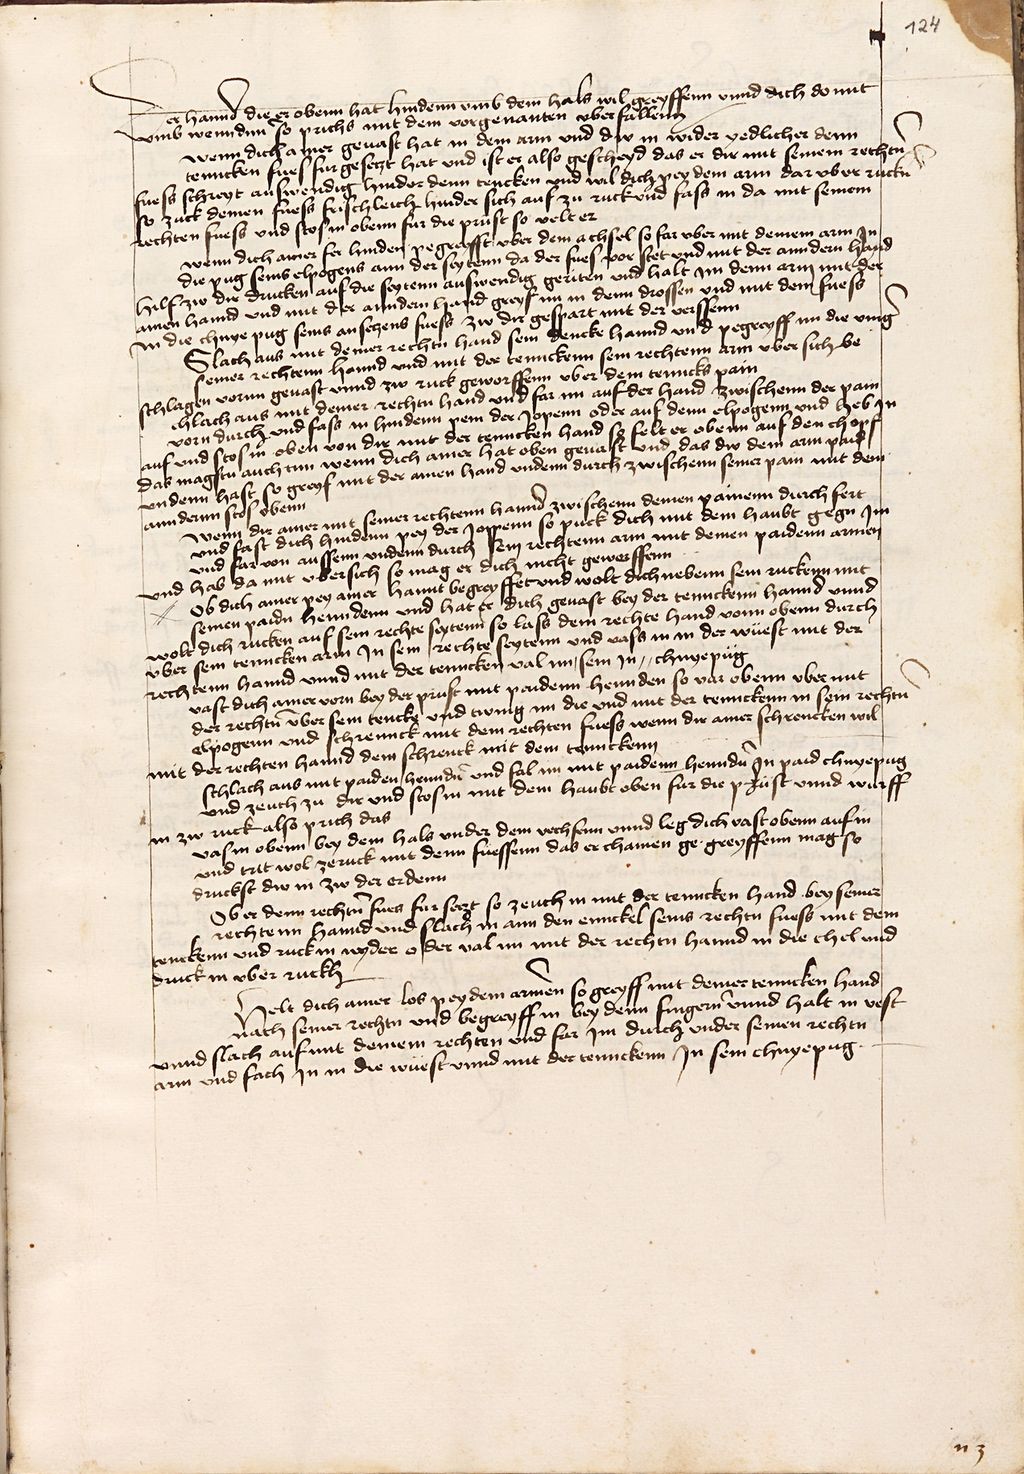 124
er hannd die er obenn hat hindenn umb dem hals wil greyffenn unnd dich do mit
umb wenndnn so prichs mit dem vorgenanten uberfallenn
wenn dich ainer gevast hat in dem arm und du in wider yedlicher denn
tenncken fues fur gesetzt hat und ist er also gescheyd das er dir mit seinem rechtn
fuess schreyt auswendig hinder denn tencken und wil dich pey dem arm dar uber ruckn
so zuck deinen fuess frischleich hinder sich auf zu ruck und fass in da mit seinem
rechten fuess und stos in obenn fur die prust so velt er
wenn dich ainer fer hinden pegreyfft uber dem achsel so far uber mit deinem arm in
die pug seins elpogens ann der seytenn da der fues vor stet und mit der anndern hand
hilf zw dir drucken auf die seytenn auswendig geriten und halt im denn arm mit der
ainen hannd und mit der anndern hand greyf im in denn drossen und mit dem fuess
in die chnye pug seins ansetzens fuess zw dir gespart mit der verssenn
Slach aus mit deiner rechtn hand sein dencke hannd und pegreyff im die ving
seiner rechtenn hannd und mit der tennckenn sein rechtenn arm uber sich be
schlagen vorun gevast unnd zw ruck geworffenn uber dem tenncks pain
chlach aus mit deiner rechtn hand und far im auf der hand zwischenn der pain
vorn durch und fass in hindenn pein der Jopenn oder auf denn elpogenn und heb in
auf und stos in oben von dir mit der tenncken hand so felt er obenn auf den chopf
das magstu auch tun wenn dich ainer hat oben gevast und das dw dem arm paid
undenn hast so greyf mit der ainen hand undenn durch zwischenn seiner pain mit dem
anndernn stos obenn
Wenn dir ainer mit seiner rechtenn hannd zwischenn deinen painenn durch fert
und fast dich hindenn pey der Joppenn so puck dich mit dem haubt gegn im
und far von aussenn undenn durch sein rechtenn arm mit deinen paidenn armen
und hab da mit ubersich so mag er dich nicht geworffenn
Ob dich ainer pey ainer hannt begreyffet und wolt dich nebenn sein ruckenn mit
seinen paidn henndenn und hat er dich gevast bey der tennckenn hannd unnd
wolt dich rucken auf sein rechte seytenn so lass dein rechte hand vonn obenn durch
uber sein tenncken arm in sein rechte seytenn und vass in in der wüest mit der
rechtenn hannd unnd mit der tenncken val im sein in chnyepüg
vast dich ainer vorn bey der prust mit paidenn hennden so var obenn uber mit
der rechtn uber sein tencke und twing im die und mit der tennckenn in sein rechtn
elpogenn und schrennck mit dem rechten fuess wenn dir ainer schrencken wil
mit der rechten hannd dem schrenck mit dem tennckenn
Schlach aus mit paiden henndn und fal im mit paidenn henndn in paid chnyepug
und zeuch zu dir und stos in mit dem haubt oben fur die prust unnd wurff
in zw ruck also prich das
vas in obenn bey dem hals under dem vechsenn unnd leg dich vast obenn auf in
und trit wol zeruck mit denn fuessenn das er chainen ge greyffenn mag so
druckst dw in zw der erdenn
Ob er denn rechtn fues fur setzt so zeuch in mit der tenncken hand bey seiner
rechtenn hannd und slach in ann den ennckel seins rechtn fuess mit dem
tenckenn und ruck in nyder oder val im mit der rechtn hannd in die chel und
druck in uber ruckh
Helt dich ainer los pey dem armen so greyff mit deiner tenncken hand
nach seiner rechtn und begreyff in bey denn fingern unnd halt in vest
unnd slach auf mit deinem rechten und far im durch under seinen rechtn
arm und fach in in die wüest unnd mit der tennckenn in sein chnyepug
n 3